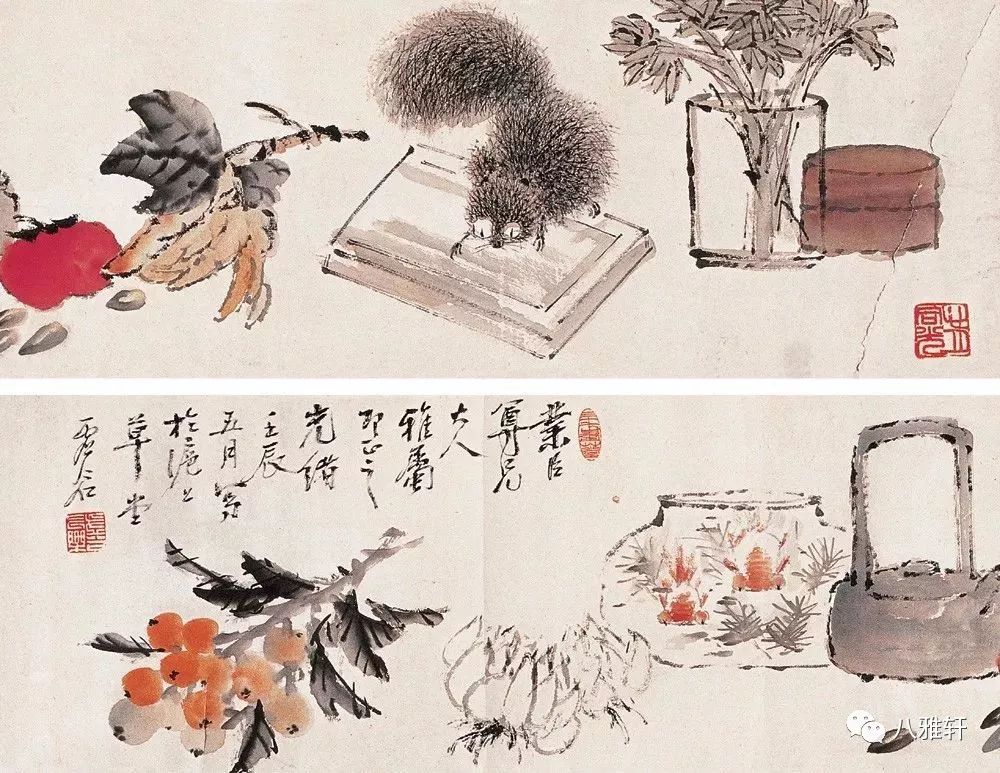 業臣
尊兄
大人
雅屬
即正之
光緒
壬辰
五月寫
於滬上
草堂
虛谷
八雅轩